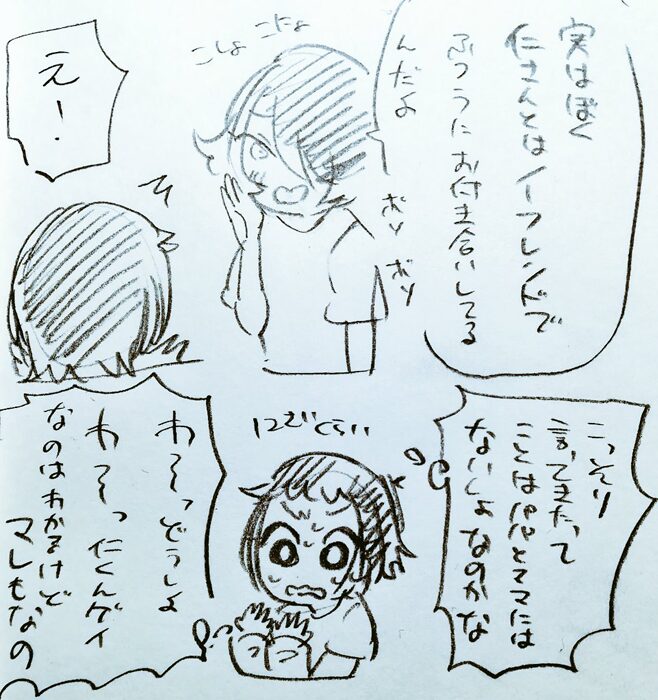 実はぼく
仁さんとはイーフレンドで
ふつうにお付き合いしてる
んだよ
こしょ こしょ
ボソ ボソ
え!
こっそり
言ってきたって
ことはパパとママには
ないしょなのかな
12さいくらい
わーーっどうしよ
わーーっ仁くんゲイ
なのはわかるけど
マレもなの